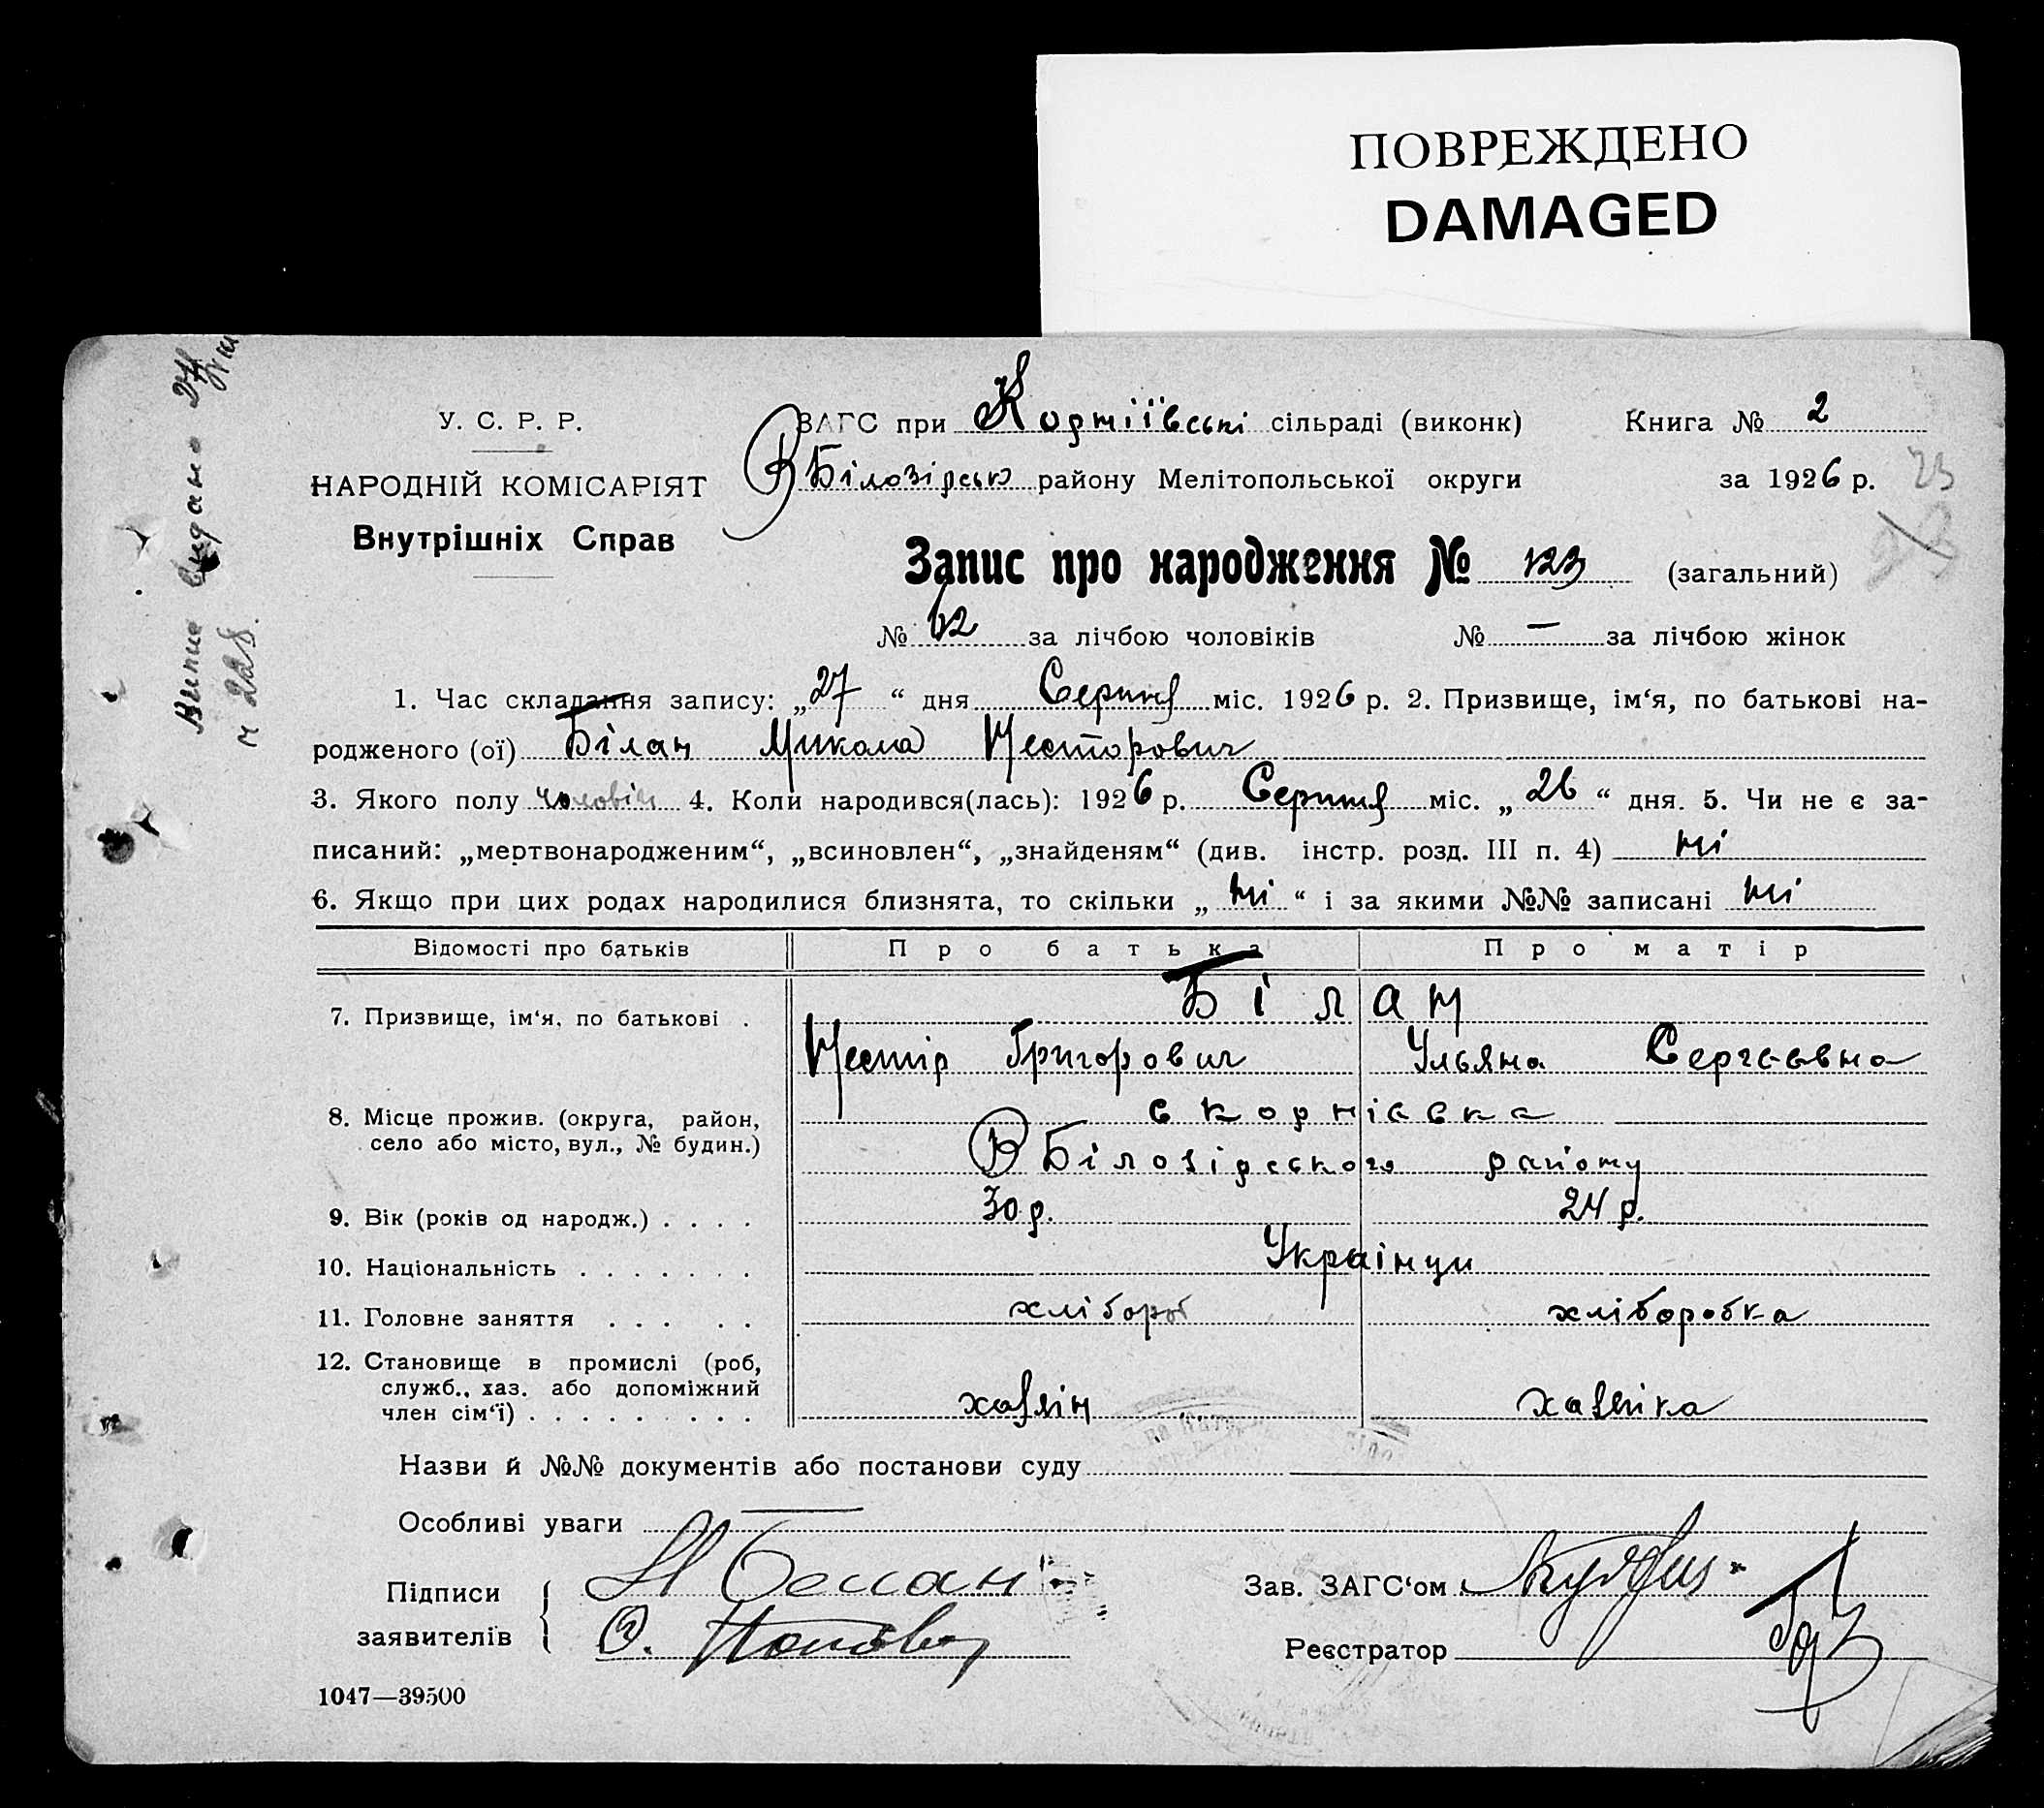 ПОВРЕЖДЕНО
DAMAGED
У. С. Р. Р.
НАРОДНІЙ КОМІСАРІЯТ
Внутрішніх Справ
ЗАГС при Корніївські сільраді (виконк) Книга № 2
В Білозірськ району Мелітопольської округи за 1926 р.
23
Запис про народження № 123 (загальний)
№ 62 за лічбою чоловіків № — за лічбою жінок
1. Час складання запису: „27“ дня Серпня міс. 1926 р. 2. Призвище, ім‘я, по батькові на-
родженого (ої) Білан Микола Несторович
3. Якого полу чоловіч 4. Коли народився(лась): 1926 р. Серпня міс. „26“ дня. 5. Чи не є за-
писаний: „мертвонародженим“, „всиновлен“, „знайденям“ (див. інстр. розд. III п. 4) ні
6. Якщо при цих родах народилися близнята, то скільки „ні“ і за якими №№ записані ні
Відомості про батьків Про батька Про матір
7. Призвище, ім‘я, по батькові . Білан
Нестір Григорович Ульяна Сергеевна
8. Місце прожив. (округа, район, с Корніевка
село або місто, вул., № будин.) В Білозірського району
9. Вік (років од народж.) . . . . 30 р. 24 р.
10. Національність . . . . . . . Українци
11. Головне заняття . . . . . хлібороб хліборобка
12. Становище в промислі (роб,
служб., хаз. або допоміжний
член сім‘ї) . . . . . . . . . хазяін хазяіка
Назви й №№ документів або постанови суду
Особливі уваги
Підписи Н Белан Зав. ЗАГС‘ом
заявителів О. Реєстратор
1047—39500
Випис видано 27
ч 228.